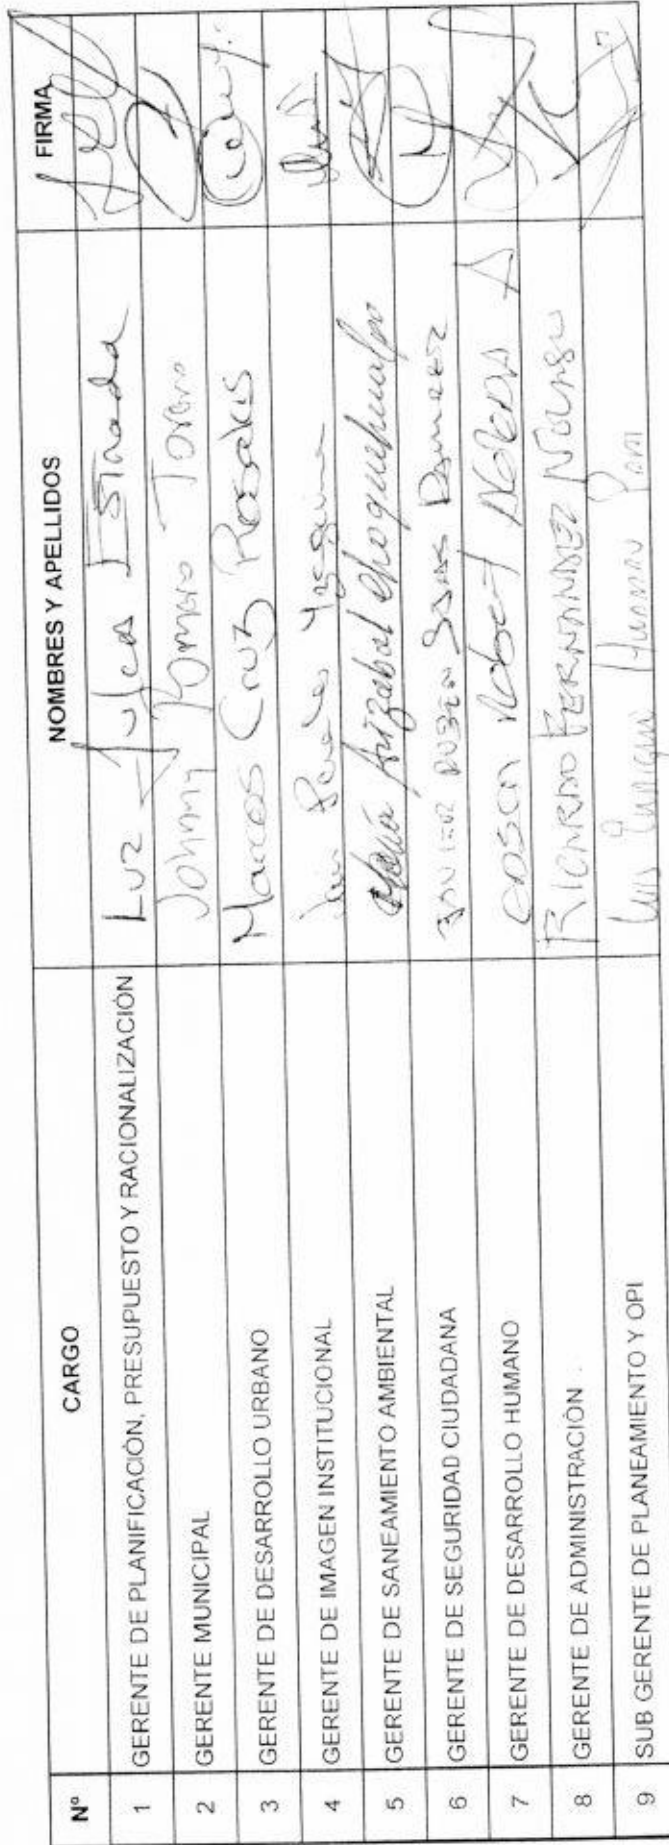 Nº CARGO NOMBRES Y APELLIDOS FIRMA
1 GERENTE DE PLANIFICACIÓN, PRESUPUESTO Y RACIONALIZACIÓN Luz Estrada
2 GERENTE MUNICIPAL Johnny Romero Torero
3 GERENTE DE DESARROLLO URBANO Marcos Cruz Rosales
4 GERENTE DE IMAGEN INSTITUCIONAL
5 GERENTE DE SANEAMIENTO AMBIENTAL María Arizabal Choquehualpa
6 GERENTE DE SEGURIDAD CIUDADANA
7 GERENTE DE DESARROLLO HUMANO Robert
8 GERENTE DE ADMINISTRACIÓN RICARDO FERNANDEZ
9 SUB GERENTE DE PLANEAMIENTO Y OPI Luis Enrique Huaman